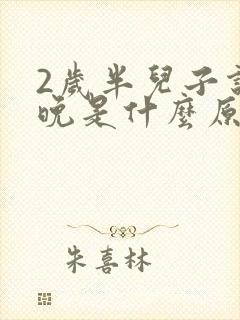 2歲半兒子
晚是什麼原
朱喜林